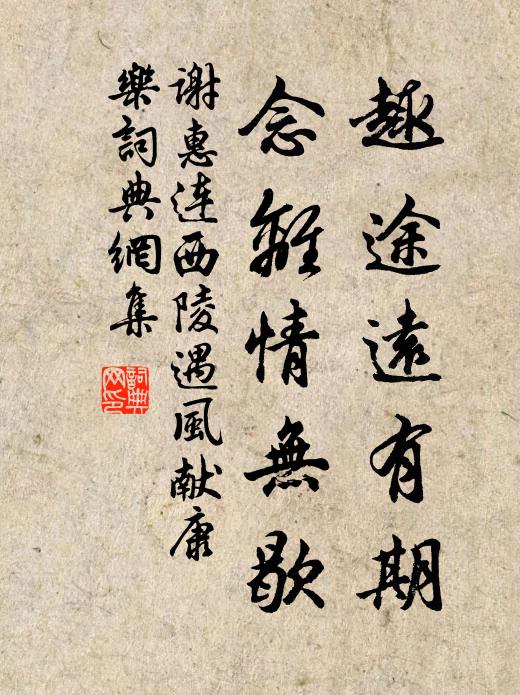 趣途遠有期
念離情無歇
谢惠連西陵遇風献康
樂詞典網集
詞典網印